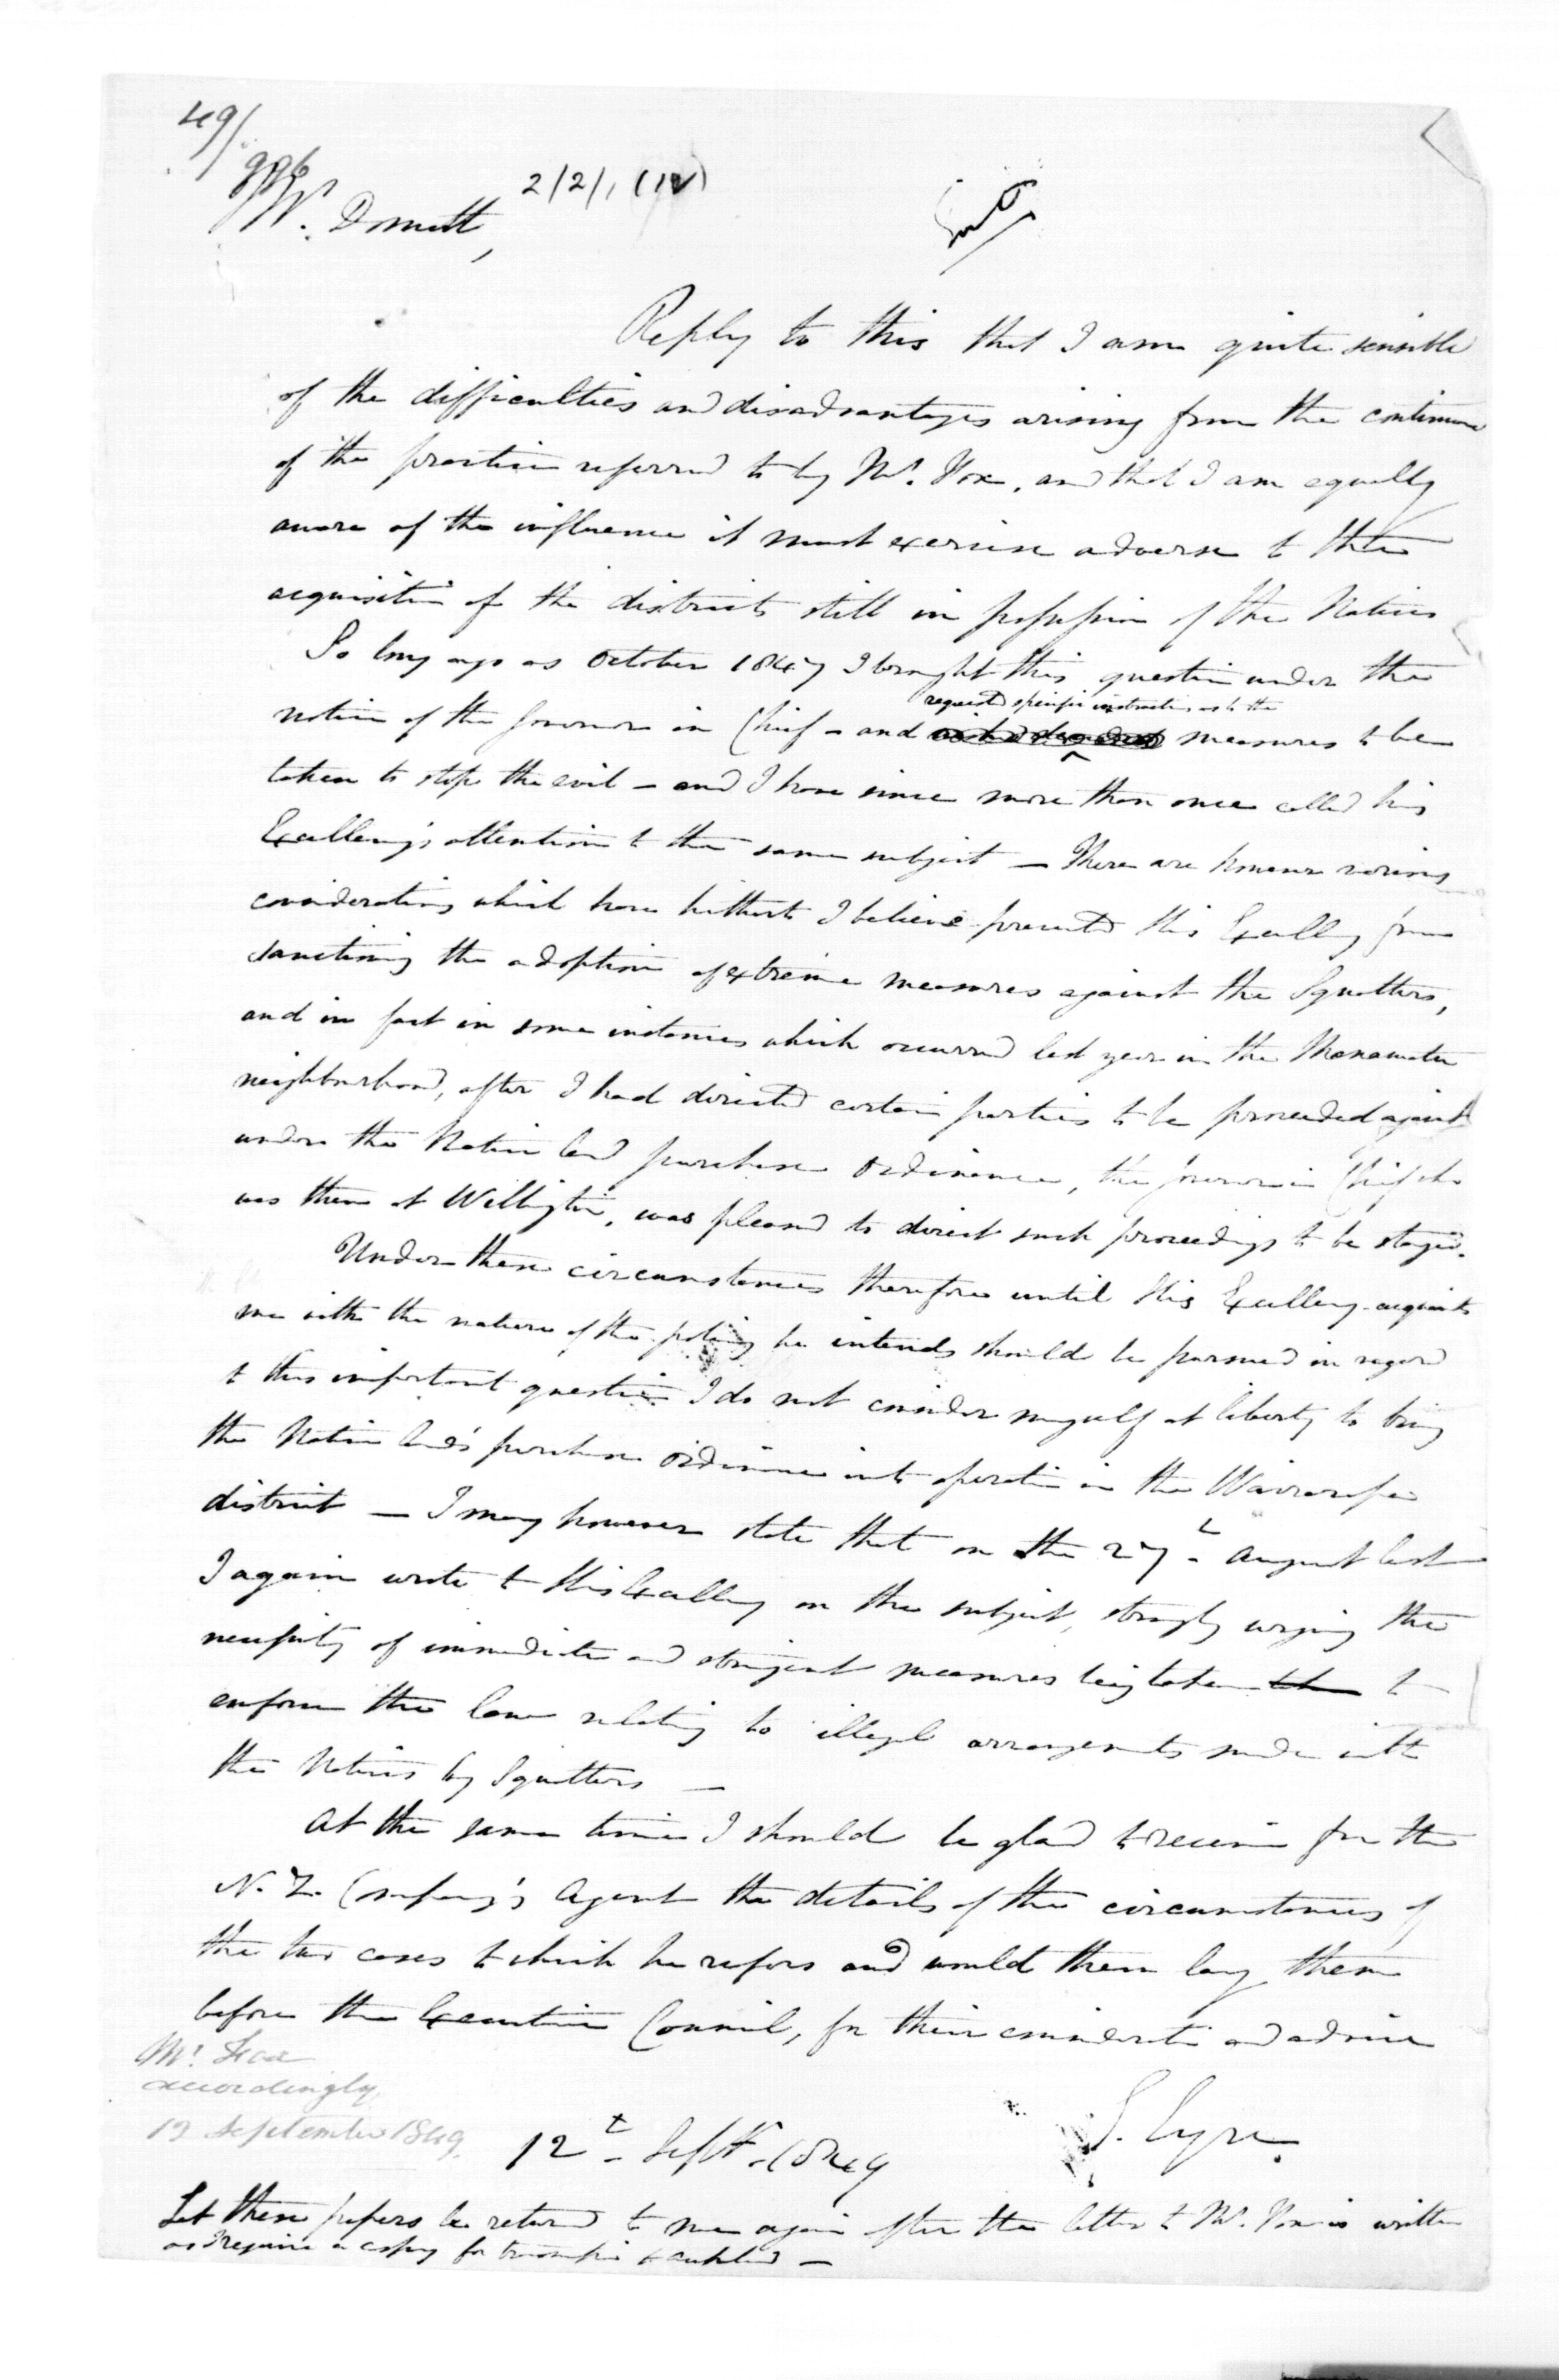 49/
996
2/2/1 (IV)
Mr. Domett,
Reply to this that I am quite sensible
of the difficulties and disadvantages arising from the continuance
of the practice referred to by Mr. Fox, and that I am equally
aware of the influence it must exercise adverse to the
acquisition of the districts still in possession of the Natives
So long ago as October 1847 I brought this question under the
notice of the Governor in Chief – and
requested specific instructions as to the
measures to be
taken to stop the evil – and I have since more than once called his
Excellency's attention to the same subject – There are however various
considerations which have hitherto I believe prevented His Excellency from
sanctioning the adoption of extreme measures against the Squatters,
and in fact in some instances which occurred last year in the Manawatu
neighbourhood, after I had directed certain parties to be proceeded against
under the Native land purchase Ordinance, the Governor in Chief who
was then at Wellington, was pleased to direct such proceedings to be stayed.
Under these circumstances therefore until His Excellency acquaints
me with the nature of the policy he intends should be pursued in regard
to this important question I do not consider myself at liberty to bring
the Native land's purchase Ordinance into operation in the Wairarapa
district – I may however state that on the 27th August last
I again wrote to His Excellency on the subject, strongly urging the
necessity of immediate and stringent measures being taken to
enforce the law relating to illegal arrangements made with
the Natives by Squatters –
At the same time I should be glad to receive from the
N.Z. Company's Agent the details of the circumstances of
the two cases to which he refers and would then lay them
before the Executive Council, for their consideration and advice
Mr. Fox
accordingly
12 September 1849.
12th Sept. 1849
E. Eyre.
Let these papers be returned to me again after the letter to Mr. Fox is written
as I require a copy for transmission to Auckland –